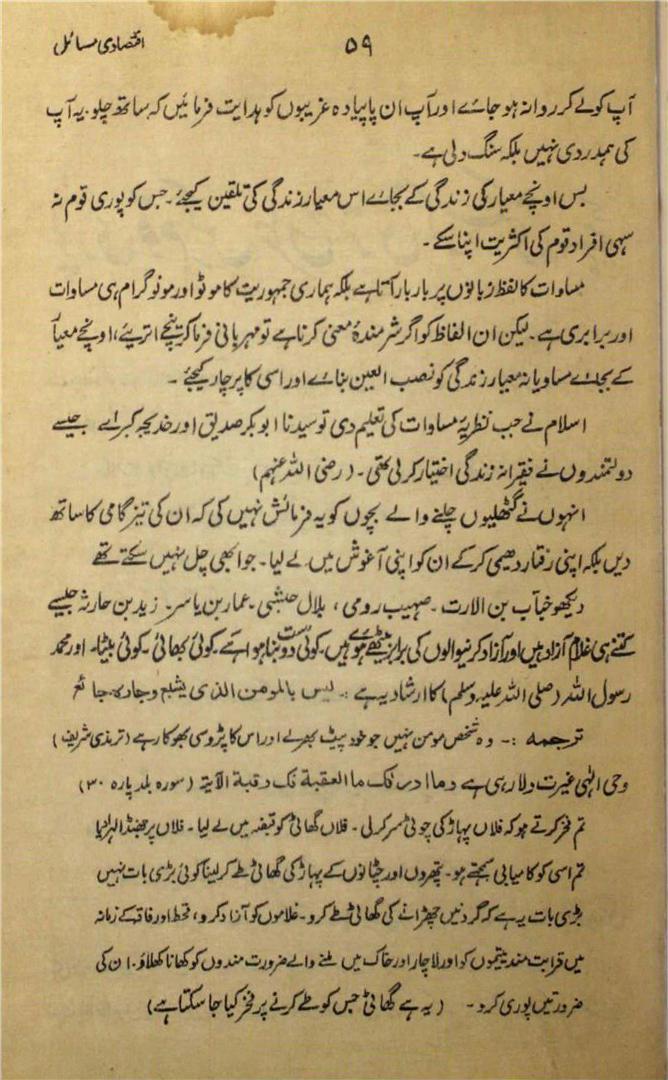 اقتصادی مسائل ۵۹
آپ کو لے کر روانہ ہو جائے اور آپ ان پاپیادہ غریبوں کو ہدایت فرمائیں کہ ساتھ چلو۔ یہ آپ
کی ہمدردی نہیں بلکہ سنگ دلی ہے۔
بس اونچے معیار کی زندگی کے بجائے اس معیار زندگی کی تلقین کیجئے۔ جس کو پوری قوم نہ
سہی افراد قوم کی اکثریت اپنا سکے۔
مساوات کا لفظ زبانوں پر بار بار آتا ہے بلکہ ہماری جمہوریت کا موٹو اور مونوگرام ہی مساوات
اور برابری ہے۔ لیکن ان الفاظ کو اگر شرمندۂ معنی کرنا ہے تو مہربانی فرما کر نیچے اتریئے، اونچے معیار
کے بجائے مساویانہ معیار زندگی کو نصب العین بنائے اور اسی کا پرچار کیجئے۔
اسلام نے جب نظریۂ مساوات کی تعلیم دی تو سیدنا ابوبکر صدیق اور خدیجہ کبرےٰ جیسے
دولتمندوں نے فقیرانہ زندگی اختیار کرلی تھی۔ (رضی اللہ عنہم)
انہوں نے گٹھلیوں چلنے والے بچوں کو یہ فرمائش نہیں کی کہ ان کی تیز گامی کا ساتھ
دیں بلکہ اپنی رفتار دھیمی کر کے ان کو اپنی آغوش میں لے لیا۔ جو ابھی چل نہیں سکتے تھے
دیکھو خبآب بن الارت۔ صہیب رومی، بلال حبشی۔ عمار بن یاسر۔ زید بن حارثہ جیسے
کتنے ہی غلام آزاد ہیں اور آزاد کرنیوالوں کی برابر بیٹھے ہوئے ہیں۔ کوئی دوست بنا ہوا ہے۔ کوئی بھائی۔ کوئی بیٹا۔ اور محمد
رسول اللہ (صلی اللہ علیہ وسلم) کا ارشاد یہ ہے :۔ لیس بالمومن الذی یشبع وجارہ جائع
ترجمہ :۔ وہ شخص مومن نہیں جو خود پیٹ بھرلے اور اس کا پڑوسی بھوکا رہے (ترمذی شریف)
وحی الٰہی غیرت دلا رہی ہے وما ادرٰک ما العقبة فک رقبة الآیة (سورہ بلد پارہ ۳۰)
تم فخر کرتے ہو کہ فلاں پہاڑ کی چوٹی سر کرلی۔ فلاں گھاٹی کو قبضہ میں لے لیا۔ فلاں پر جھنڈا لہرا دیا
تم اسی کو کامیابی سمجھتے ہو۔ پتھروں اور چٹانوں کے پہاڑ کی گھاٹی طے کر لینا کوئی بڑی بات نہیں
بڑی بات یہ ہے کہ گردنیں چھڑانے کی گھاٹی طے کرو۔ غلاموں کو آزاد کرو، قحط اور فاقہ کے زمانہ
میں قرابت مند یتیموں کو اور لاچار اور خاک میں ملنے والے ضرورت مندوں کو کھانا کھلاؤ۔ ان کی
ضرورتیں پوری کرو۔ (یہ ہے گھاٹی جس کو طے کرنے پر فخر کیا جا سکتا ہے)